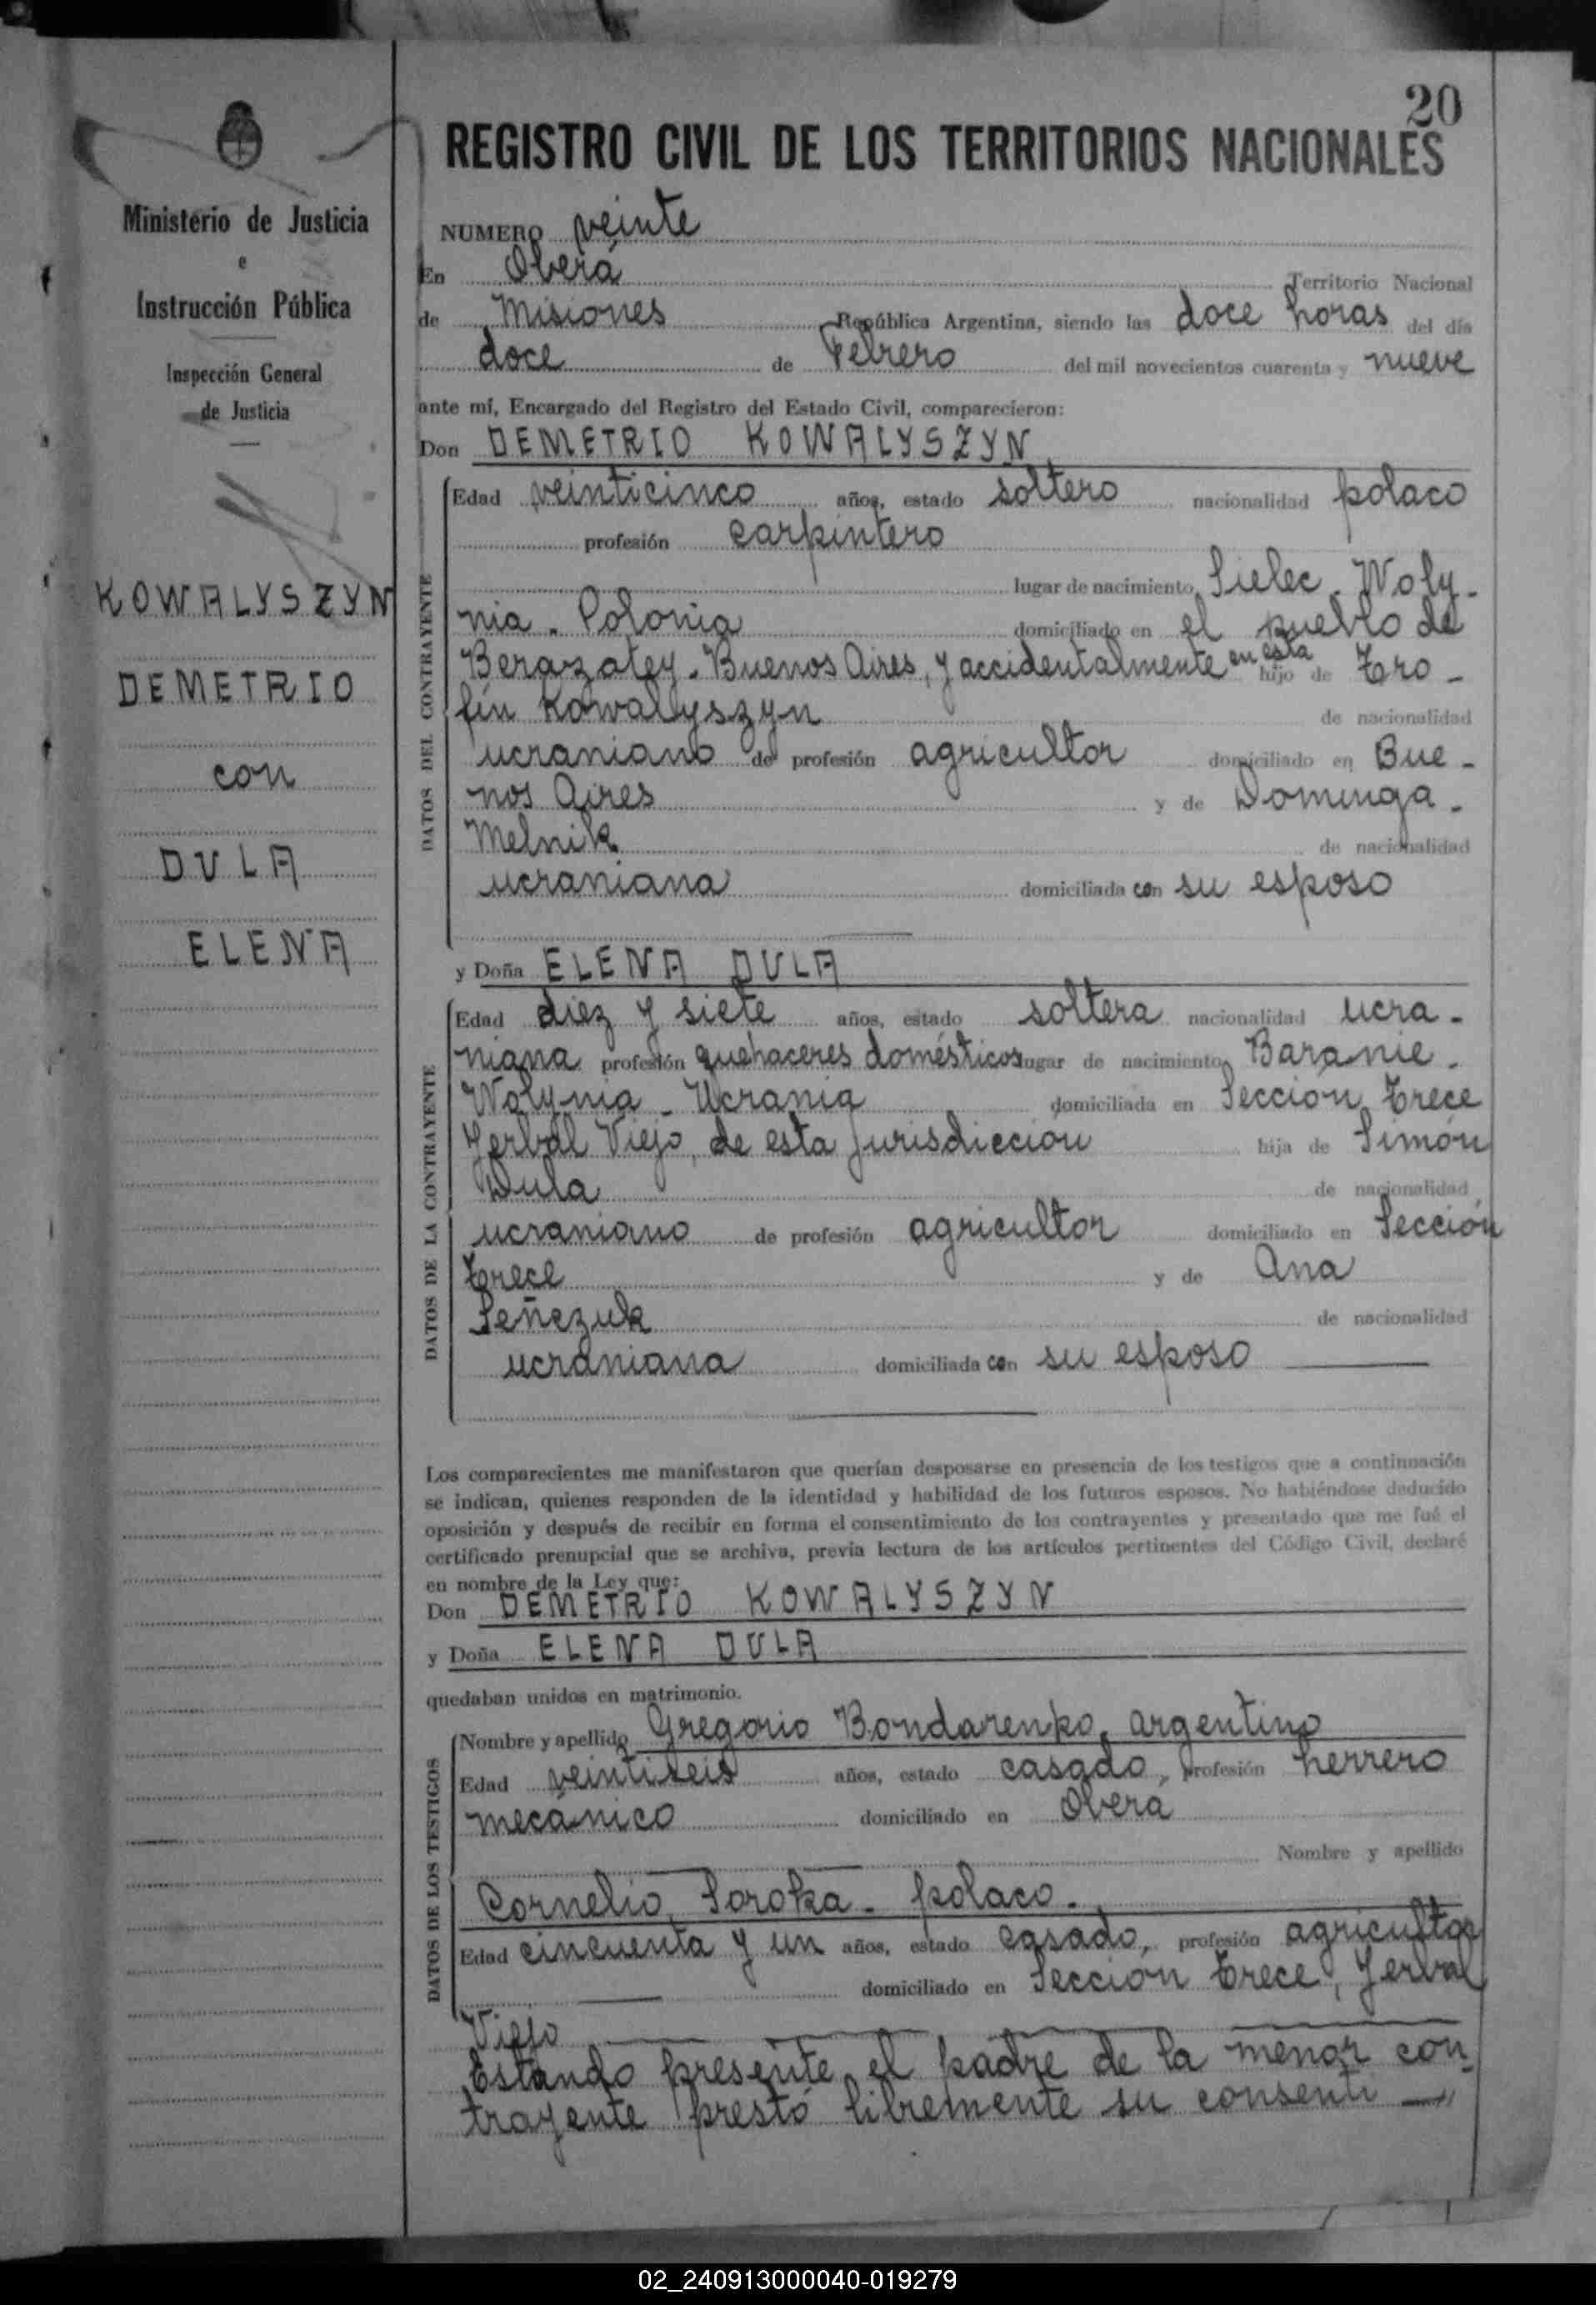 20
REGISTRO CIVIL DE LOS TERRITORIOS NACIONALES
Ministerio de Justicia
e
Instrucción Pública
Inspección General
de Justicia
KOWALYSZYN
DEMETRIO
con
DULA
ELENA
NUMERO veinte
En Oberá Territorio Nacional
de Misiones República Argentina, siendo las doce horas del día
doce de Febrero del mil novecientos cuarenta y nueve
ante mí, Encargado del Registro del Estado Civil, comparecieron:
Don DEMETRIO KOWALYSZYN
DATOS DEL CONTRAYENTE
Edad veinticinco años, estado soltero nacionalidad polaco
profesión carpintero
lugar de nacimiento Sielec. Woly-
nia. Polonia domiciliado en el pueblo de
Berazatey. Buenos Aires, y accidentalmente en esta hijo de Tro-
fin Kowallyszyn de nacionalidad
ucraniano de profesión agricultor domiciliado en Bue-
nos Aires y de Dominga.
Melnik de nacionalidad
ucraniana domiciliada con su esposo
y Doña ELENA DULA
DATOS DE LA CONTRAYENTE
Edad diez y siete años, estado soltera nacionalidad ucra-
niana profesión quehaceres domésticos lugar de nacimiento Baranie.
Wolynia - Ucrania domiciliada en Sección Trece
Yerbal Viejo, de esta jurisdicción hija de Simón
Dula de nacionalidad
ucraniano de profesión agricultor domiciliado en Sección
Trece y de Ana
Señezuk de nacionalidad
ucraniana domiciliada con su esposo
Los comparecientes me manifestaron que querían desposarse en presencia de los testigos que a continuación
se indican, quienes responden de la identidad y habilidad de los futuros esposos. No habiéndose deducido
oposición y después de recibir en forma el consentimiento de los contrayentes y presentado que me fué el
certificado prenupcial que se archiva, previa lectura de los artículos pertinentes del Código Civil, declaré
en nombre de la Ley que:
Don DEMETRIO KOWALYSZYN
y Doña ELENA DULA
quedaban unidos en matrimonio.
DATOS DE LOS TESTIGOS
Nombre y apellido Gregorio Bondarenko, argentino
Edad veintiseis años, estado casado, profesión herrero
mecánico domiciliado en Oberá
Nombre y apellido
Cornelio Soroka - polaco.
Edad cincuenta y un años, estado casado, profesión agricultor
domiciliado en Sección Trece, Yerbal
Viejo
Estando presente el padre de la menor con-
trayente prestó libremente su consenti
02_240913000040-019279